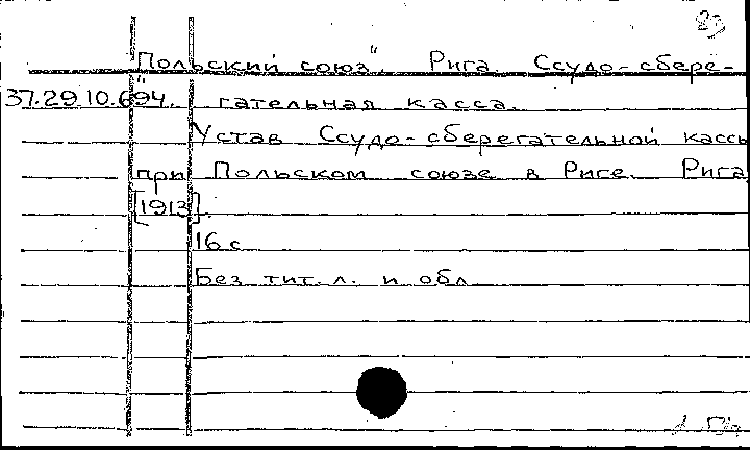 23
"Польский союз". Рига. Ссудо-сбере-
37.29.10.694. гательная касса.
Устав Ссудо-сберегательной кассы
при Польском союзе в Риге. Рига
[1913].
16 с
Без тит. л. и обл